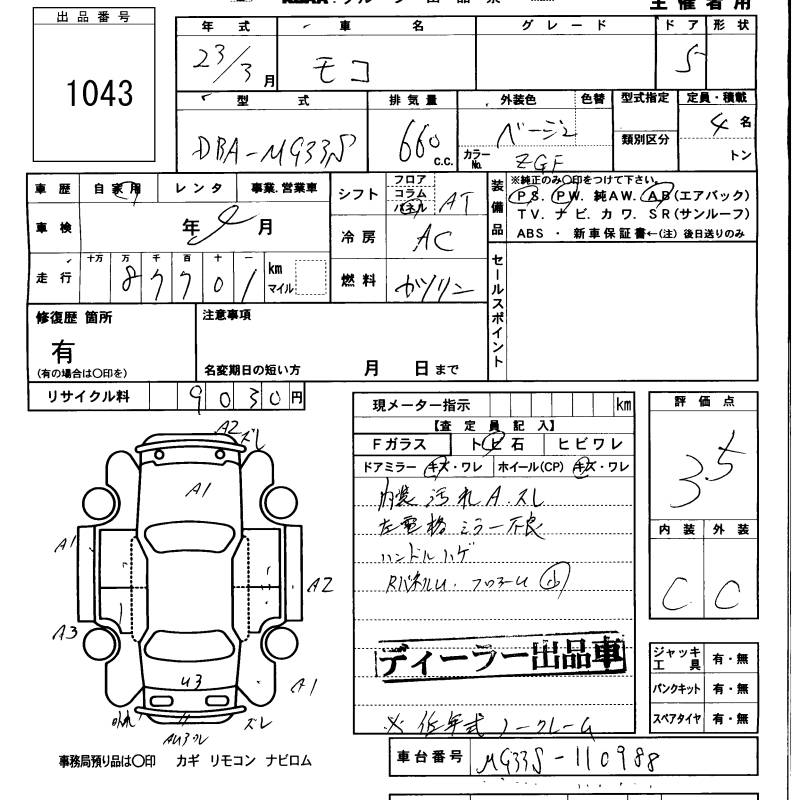 出品番号
1043
年式 車名 グレード ドア 形状
23/3月 モコ 5
型式 排気量 外装色 色替 型式指定 定員・積載
類別区分
DBA-MG33S 660 c.c. ベージュ 4名
カラーNo. ZGF トン
車歴 自家用 レンタ 事業.営業車
シフト フロア コラム パネル AT
装備品
※純正のみ〇印をつけて下さい。
PS. PW. 純AW. AB(エアバック)
TV. ナビ. カワ. SR(サンルーフ)
ABS ・ 新車保証書←(注) 後日送りのみ
車検 年 月
冷房 AC
走行 十万 万 千 百 十 一 km マイル
87701
燃料 ガソリン
セールスポイント
修復歴 箇所
有
(有の場合は〇印を)
注意事項
名変期日の短い方 月 日まで
リサイクル料 9030円
現メーター指示 km
評価点
3.5
【査定員記入】
Fガラス トビ石 ヒビワレ
ドアミラー キズ・ワレ ホイール(CP) キズ・ワレ
内装汚れ A.スレ
左電格ミラー不良
ハンドルハゲ
RパネルU. フロアーU 小
内装 外装
C C
ディーラー出品車
※低年式ノークレーム
ジャッキ工具 有・無
パンクキット 有・無
スペアタイヤ 有・無
車台番号 MG33S-110988
A2 ズレ
A1
A1
A2
A3
U3
A1
ズレ
事務局預り品は〇印 カギ リモコン ナビロム